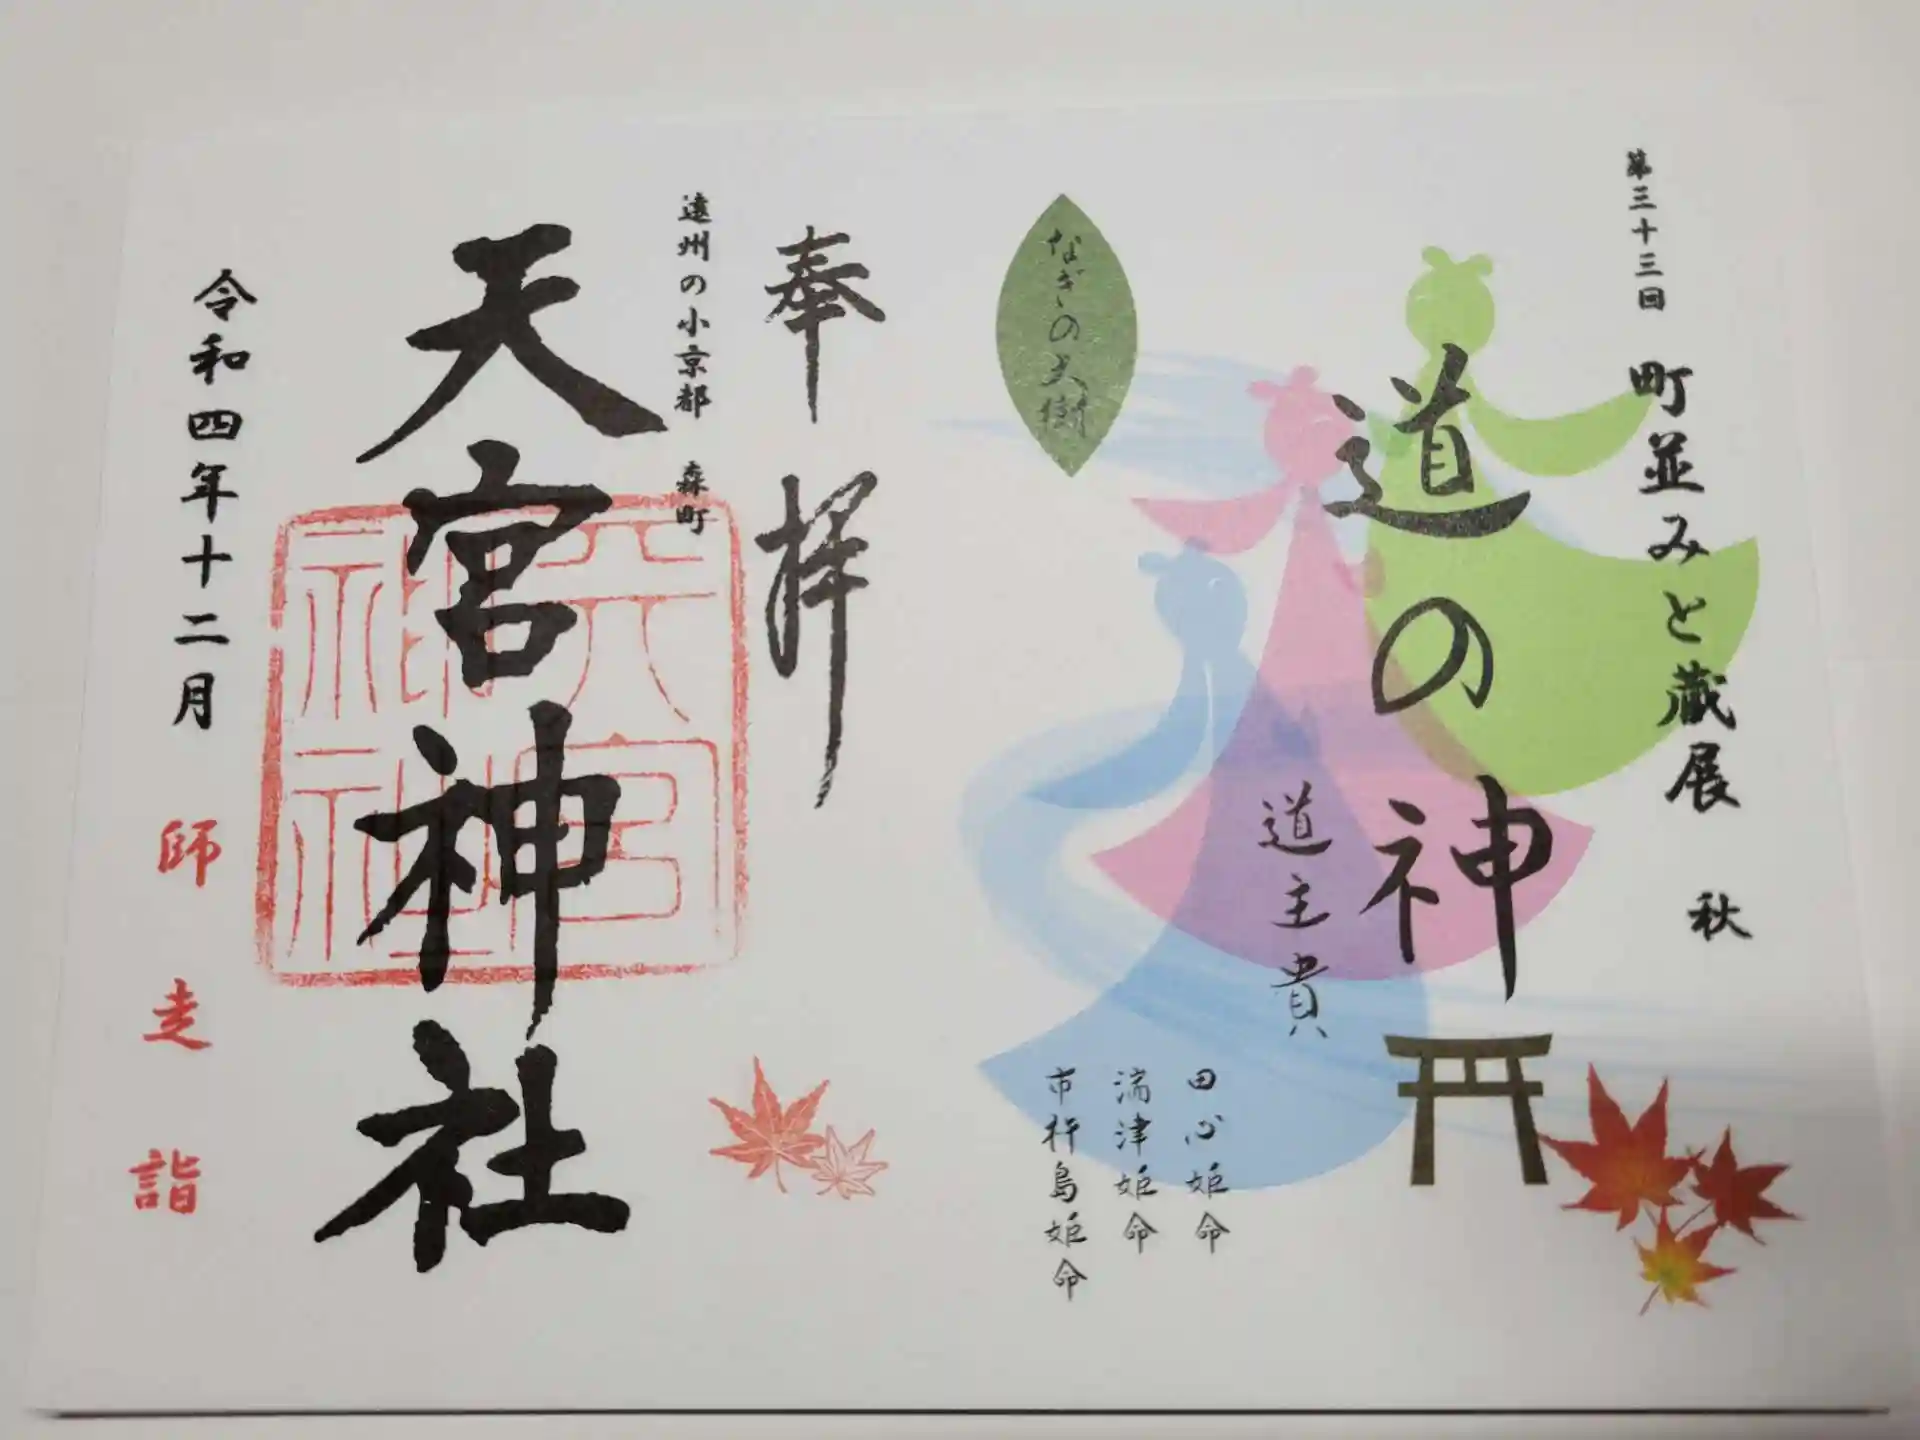 第三十三回 町並みと蔵展 秋
道の神
道主貴
田心姫命
湍津姫命
市杵島姫命
なぎの大樹
奉拝
遠州の小京都 森町
天宮神社
天宮神社
令和四年十二月
師走詣